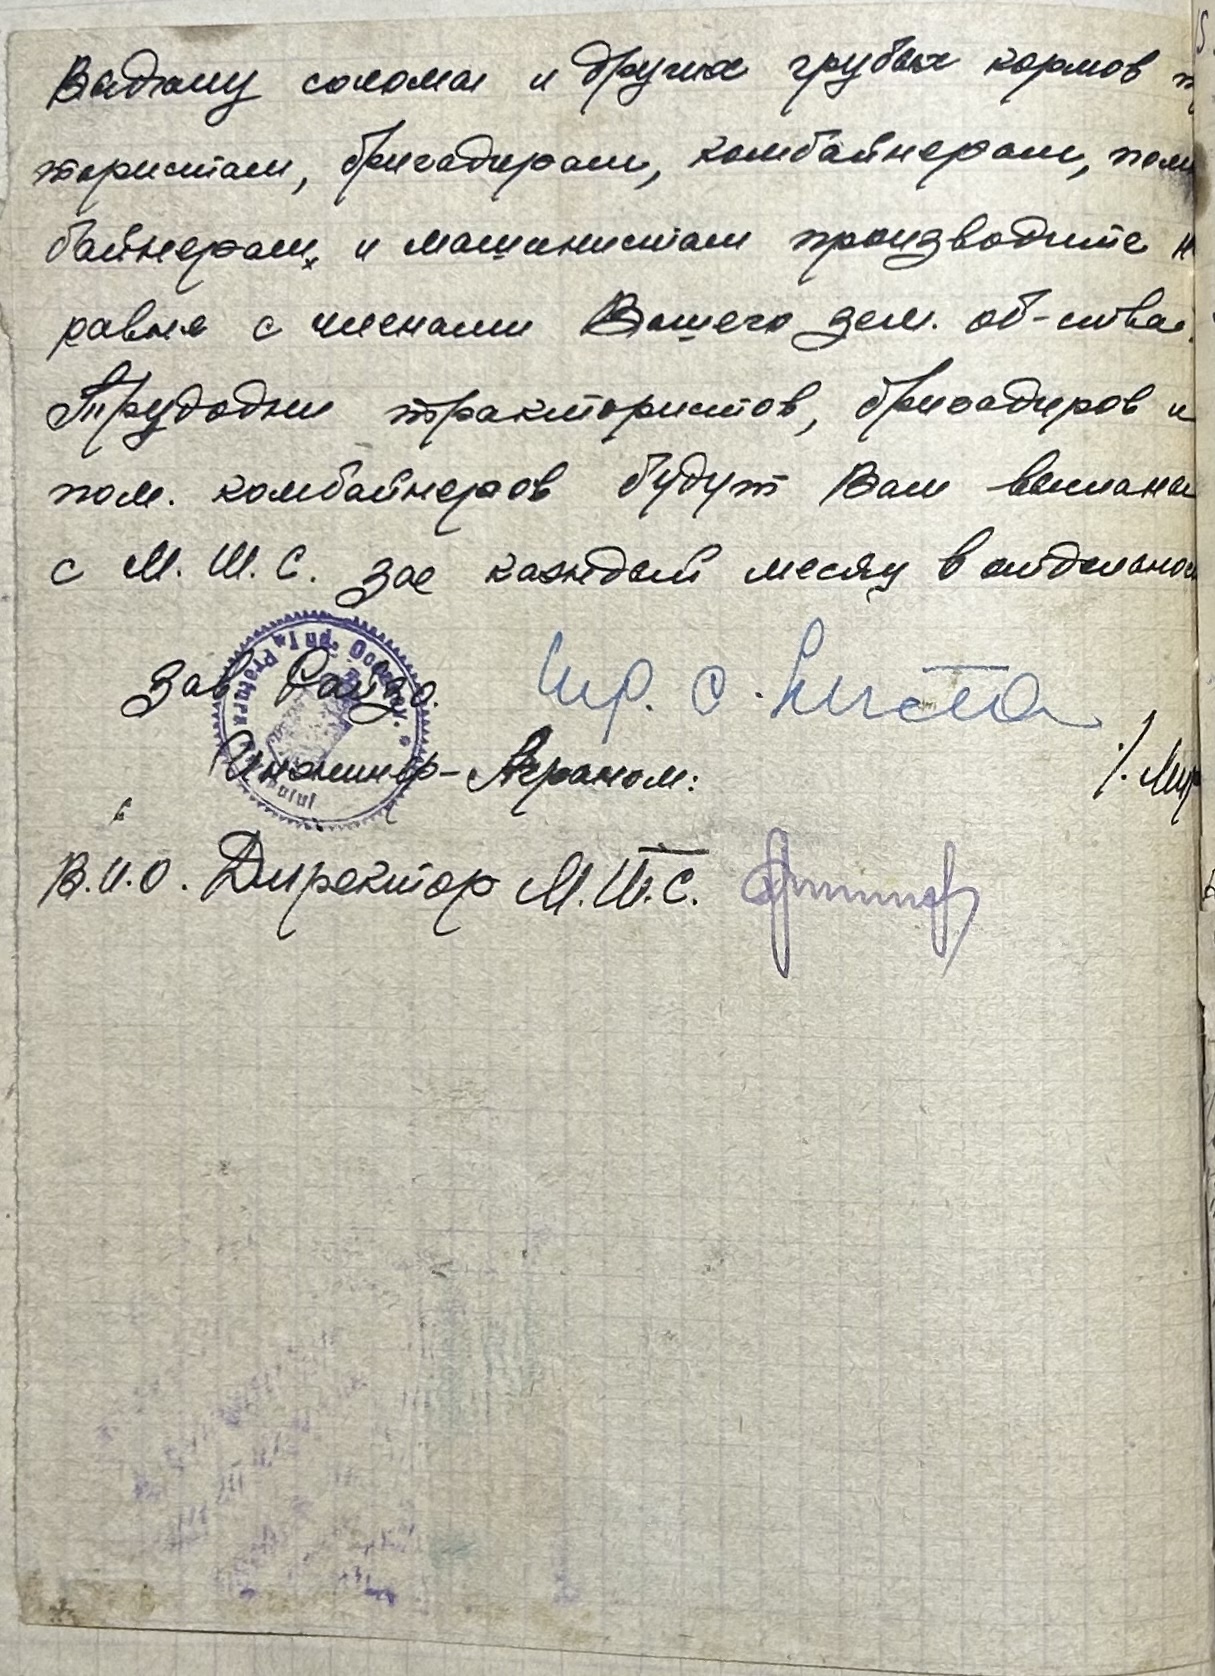 Вадачу соломы и других грубых кормов т
тористам, бригадирам, комбайнерам, пом
байнерам, и машинистам производите н
равне с членами Вашего зем. об-ства.
Трудодни трактористов, бригадиров и
пом. комбайнеров будут Вам высланы
с М.Т.С. за каждый месяц в отдельнос
Зав Райзо.
Инжинер-Аграном:
В.И.О. Директор М.Т.С.